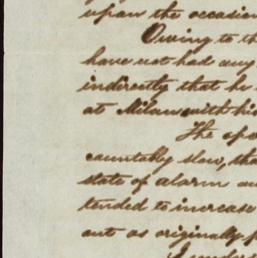 upon the occasion
Owing to th
have not had any
indirectly that he
at Milan with his
The ope
countably slow, tha
state of alarm an
tended to increase
out as originally p
I unders